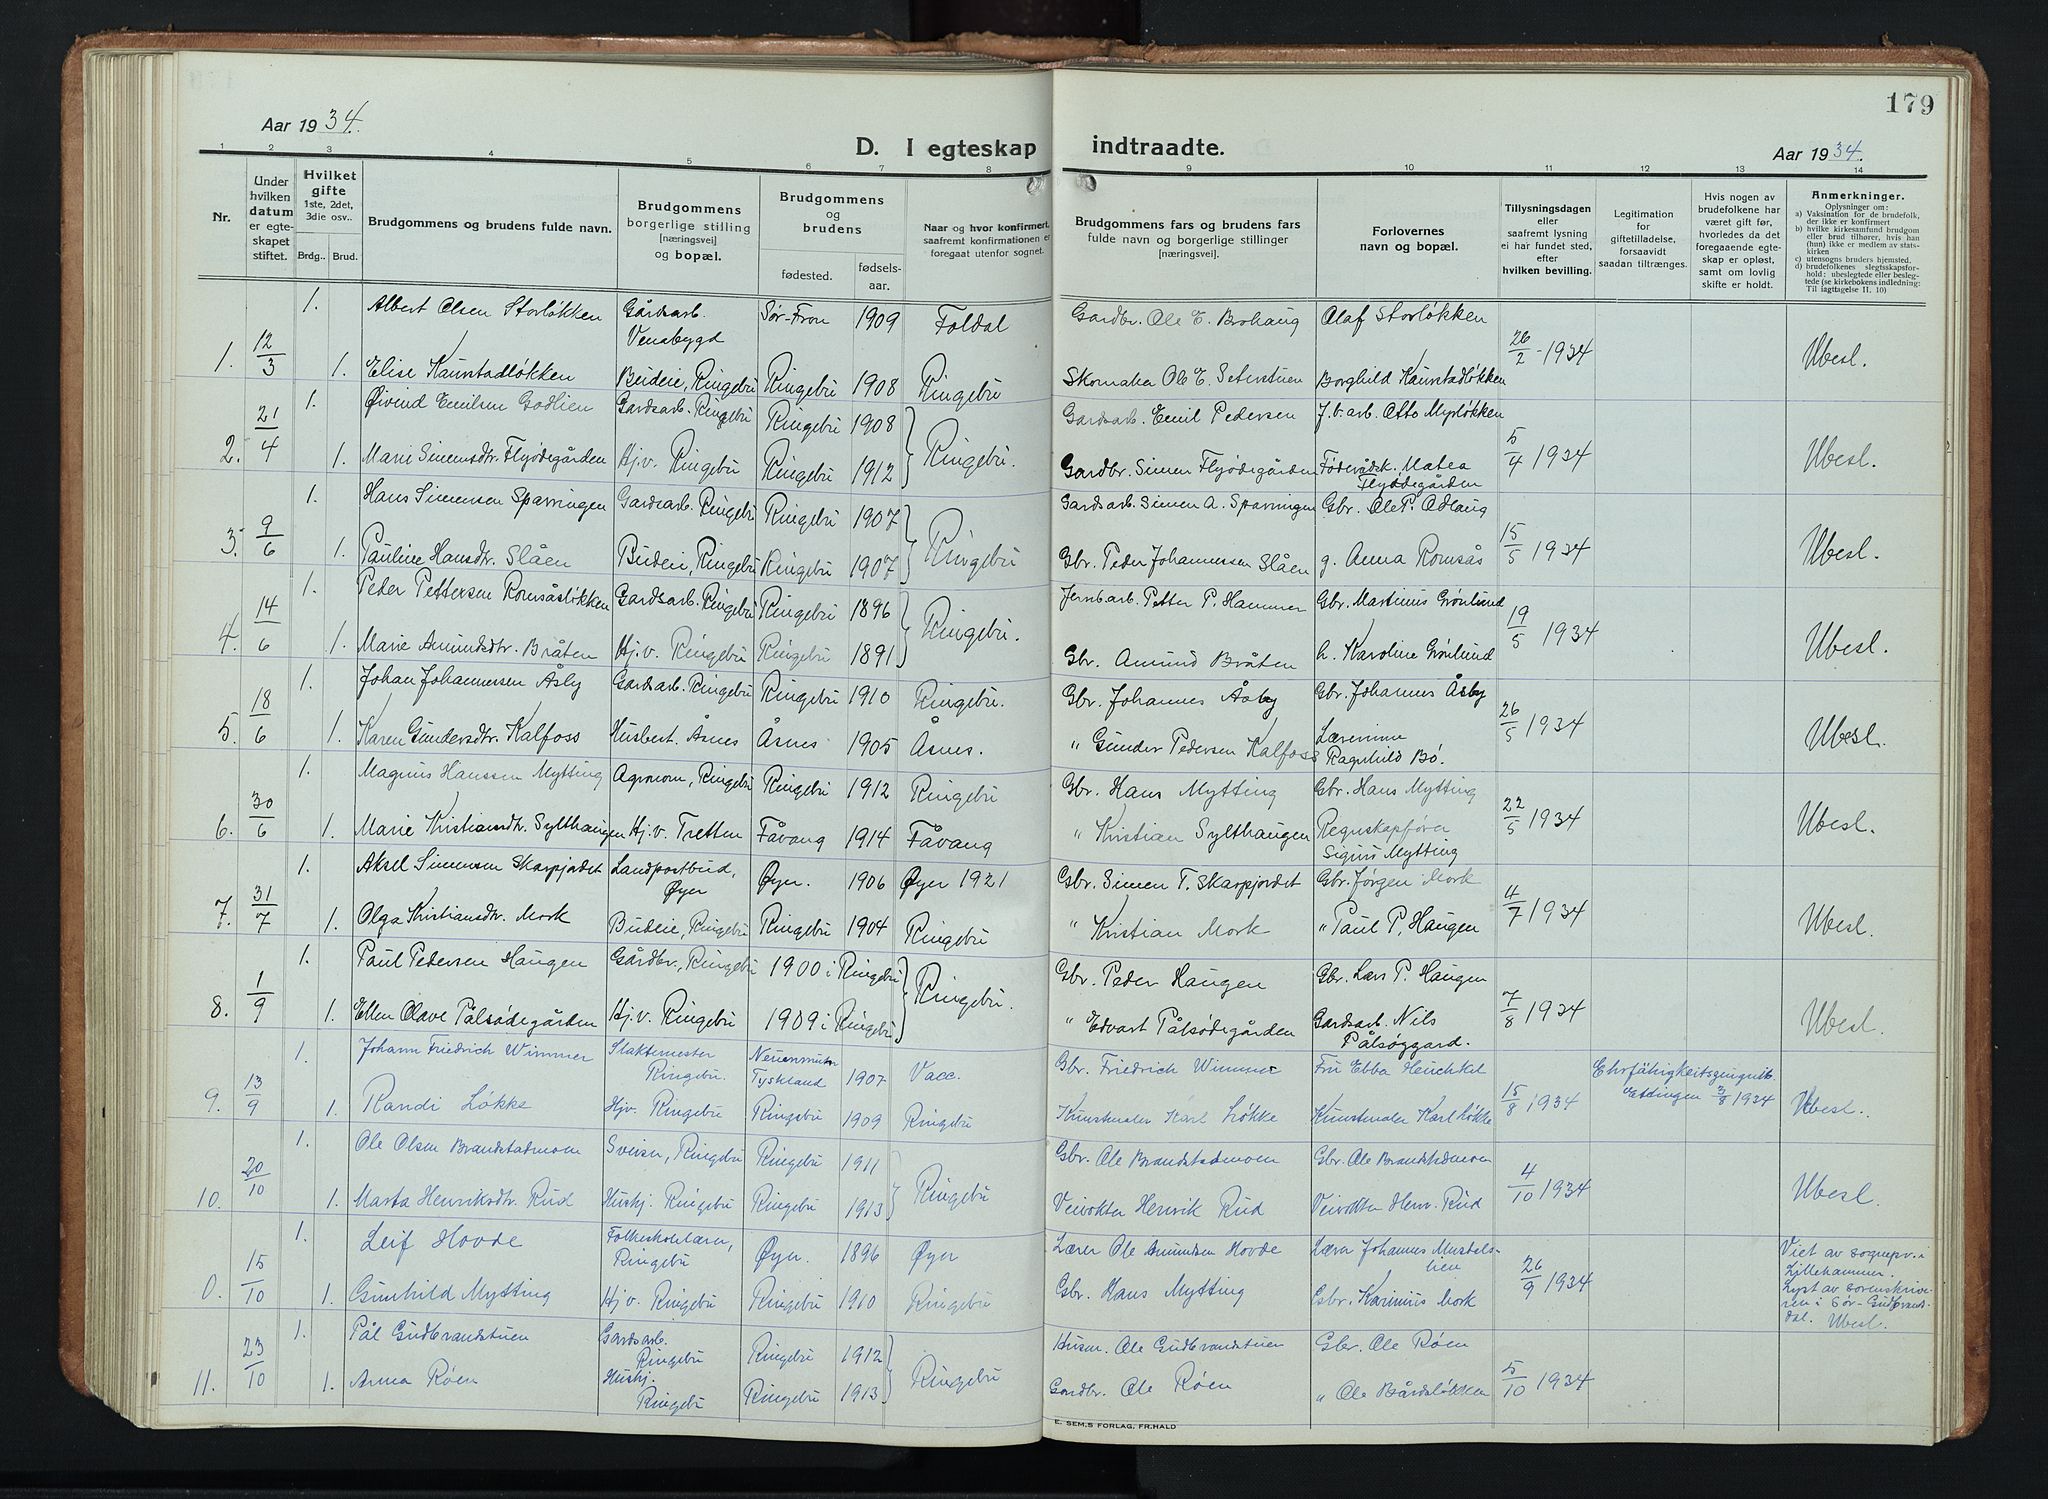 179
Aar 1934.
D. I egteskap indtraadte.
Aar 1934.
1 2 3 4 5 6 7 8 9 10 11 12 13 14
Nr.
Under hvilken datum er egteskapet stiftet.
Hvilket gifte 1ste, 2det, 3die osv..
Brdg.. Brud.
Brudgommens og brudens fulde navn.
Brudgommens borgerlige stilling [næringsvei] og bopæl.
Brudgommens og brudens
fødested. fødsels-aar.
Naar og hvor konfirmert, saafremt konfirmationen er foregaat utenfor sognet.
Brudgommens fars og brudens fars fulde navn og borgerlige stillinger [næringsvei].
Forlovernes navn og bopæl.
Tillysningsdagen eller saafremt lysning ei har fundet sted, efter hvilken bevilling.
Legitimation for giftetilladelse, forsaavidt saadan tiltrænges.
Hvis nogen av brudefolkene har været gift før, hvorledes da det foregaaende egteskap er opløst, samt om lovlig skifte er holdt.
Anmerkninger.
Oplysninger om:
a) Vaksination for de brudefolk, der ikke er konfirmert
b) hvilke kirkesamfund brudgom eller brud tilhører, hvis han (hun) ikke er medlem av statskirken
c) utensogns bruders hjemsted.
d) brudefolkenes slegtsskapsforhold: ubeslegtede eller beslegtede (se kirkebokens indledning: Til iagttagelse II. 10)
1. Albert Olsen Storløkken Gårdsarb. Venabygd Sør-Fron 1909 Foldal Gardbr. Ole E. Brohaug Olaf Storløkken
12/3 1. Elise Kaunstadløkken Budeie, Ringebu Ringebu 1908 Ringebu Skomaker Ole E. Seterstuen Borghild Kaunstadløkken 26/2 - 1934 Ubesl.
1. Øivind Emilsen Godlien Gardsarb. Ringebu Ringebu 1908 Gardsarb. Emil Pedersen J.b.arb. Otto Myrløkken
2. 21/4 1. Marie Simensdtr. Flyødegården Hj.v. Ringebu Ringebu 1912 Ringebu. Gardbr. Simen Flyødegården Føderådsk. Matea Flyødegården 5/4 1934 Ubesl.
1. Hans Simensen Sparringen Gardsarb. Ringebu Ringebu 1907 Gardsarb. Simen A. Sparringen Gbr. Ole P. Odlaug
3. 9/6 1. Pauline Hansdtr. Slåen Budeie, Ringebu Ringebu 1907 Ringebu Gbr. Peder Johannessen Slåen g. Anna Romsås 15/5 1934 Ubesl.
1. Peder Pettersen Romsåsløkken Gardsarb. Ringebu Ringebu 1896 Jernb.arb. Petter P. Hammer Gbr. Martinus Grønlund
4. 14/6 1. Marie Amundsdtr. Bråten Hj.v. Ringebu Ringebu 1891 Ringebu. Gbr. Amund Bråten h. Karoline Grønlund 19/5 1934 Ubesl.
1. Johan Johannessen Åsby Gardsarb. Ringebu Ringebu 1910 Ringebu. Gbr. Johannes Åsby Gbr. Johannes Åsby
5. 18/6 1. Karen Gundersdtr. Kalfoss Husbest. Åsnes Åsnes 1905 Åsnes. " Gunder Pedersen Kalfoss Lærerinne Ragnhild Bø. 26/5 1934 Ubesl.
1. Magnus Hanssen Mytting Agronom, Ringebu Ringebu 1912 Ringebu Gbr. Hans Mytting Gbr. Hans Mytting
6. 30/6 1. Marie Kristiansdtr. Sylthaugen Hj.v. Tretten Fåvang 1914 Fåvang " Kristian Sylthaugen Regnskapfører Sigurd Mytting 22/5 1934 Ubesl.
1. Aksel Simensen Skarpjordet Landpostbud, Øyer Øyer. 1906 Øyer 1921 Gbr. Simen T. Skarpjordet Gbr. Jørgen Mork
7. 31/7 1. Olga Kristiansdtr. Mork Budeie, Ringebu Ringebu 1904 Ringebu " Kristian Mork " Paul P. Haugen 4/7 1934 Ubesl.
1. Paul Pedersen Haugen Gårdbr., Ringebu 1900 i Ringebu Gbr. Peder Haugen Gbr. Lars P. Haugen
8. 1/9 1. Ellen Olave Pålsødegården Hj.v. Ringebu 1909 i Ringebu Ringebu. " Edvart Pålsødegården Gardsarb. Nils Pålsøggard. 7/8 1934 Ubesl.
1. Johann Friedrich Wimmer Slaktemester Ringebu. Tyskland 1907 Vacc. Gbr. Friedrich Wimmer Fru Ebba Heuchkel Ehrfähigkeitszeugnis. Ettlingen 3/8 1934
9. 13/9 1. Randi Løkke Hjv. Ringebu Ringebu 1909 Ringebu Kunstmaler Karl Løkke Kunstmaler Karl Løkke 15/8 1934 Ubesl.
1. Ole Olsen Brandstadmoen Sveiser, Ringebu Ringebu 1911 Gbr. Ole Brandstadmoen Gbr. Ole Brandstadmoen
10. 20/10 1. Marta Henriksdtr. Rud Hushj. Ringebu Ringebu 1913 Ringebu Veivokter Henrik Rud Veivokter Henr. Rud 4/10 1934 Ubesl.
1. Leif Hovde Folkeskolelærer, Ringebu Øyer. 1896 Øyer Lærer Ole Amundsen Hovde Lærer Johannes Mustelslien
0. 15/10 1. Gunhild Mytting Hj.v. Ringebu Ringebu 1910 Ringebu Gbr. Hans Mytting Gbr. Karinius Mork 26/9 1934 Viet av sognepr. i Lillehammer. Lyst av sorenskriveren i Sør-Gudbrandsdal. Ubesl.
1. Pål Gudbrandstuen Gardsarb. Ringebu Ringebu 1912 Husm. Ole Gudbrandstuen Gbr. Ole Røen
11. 23/10 1. Anna Røen Hushj. Ringebu Ringebu 1913 Ringebu Gardbr. Ole Røen " Ole Bårdsløkken 5/10 1934
E. SEM.S FORLAG, FR.HALD